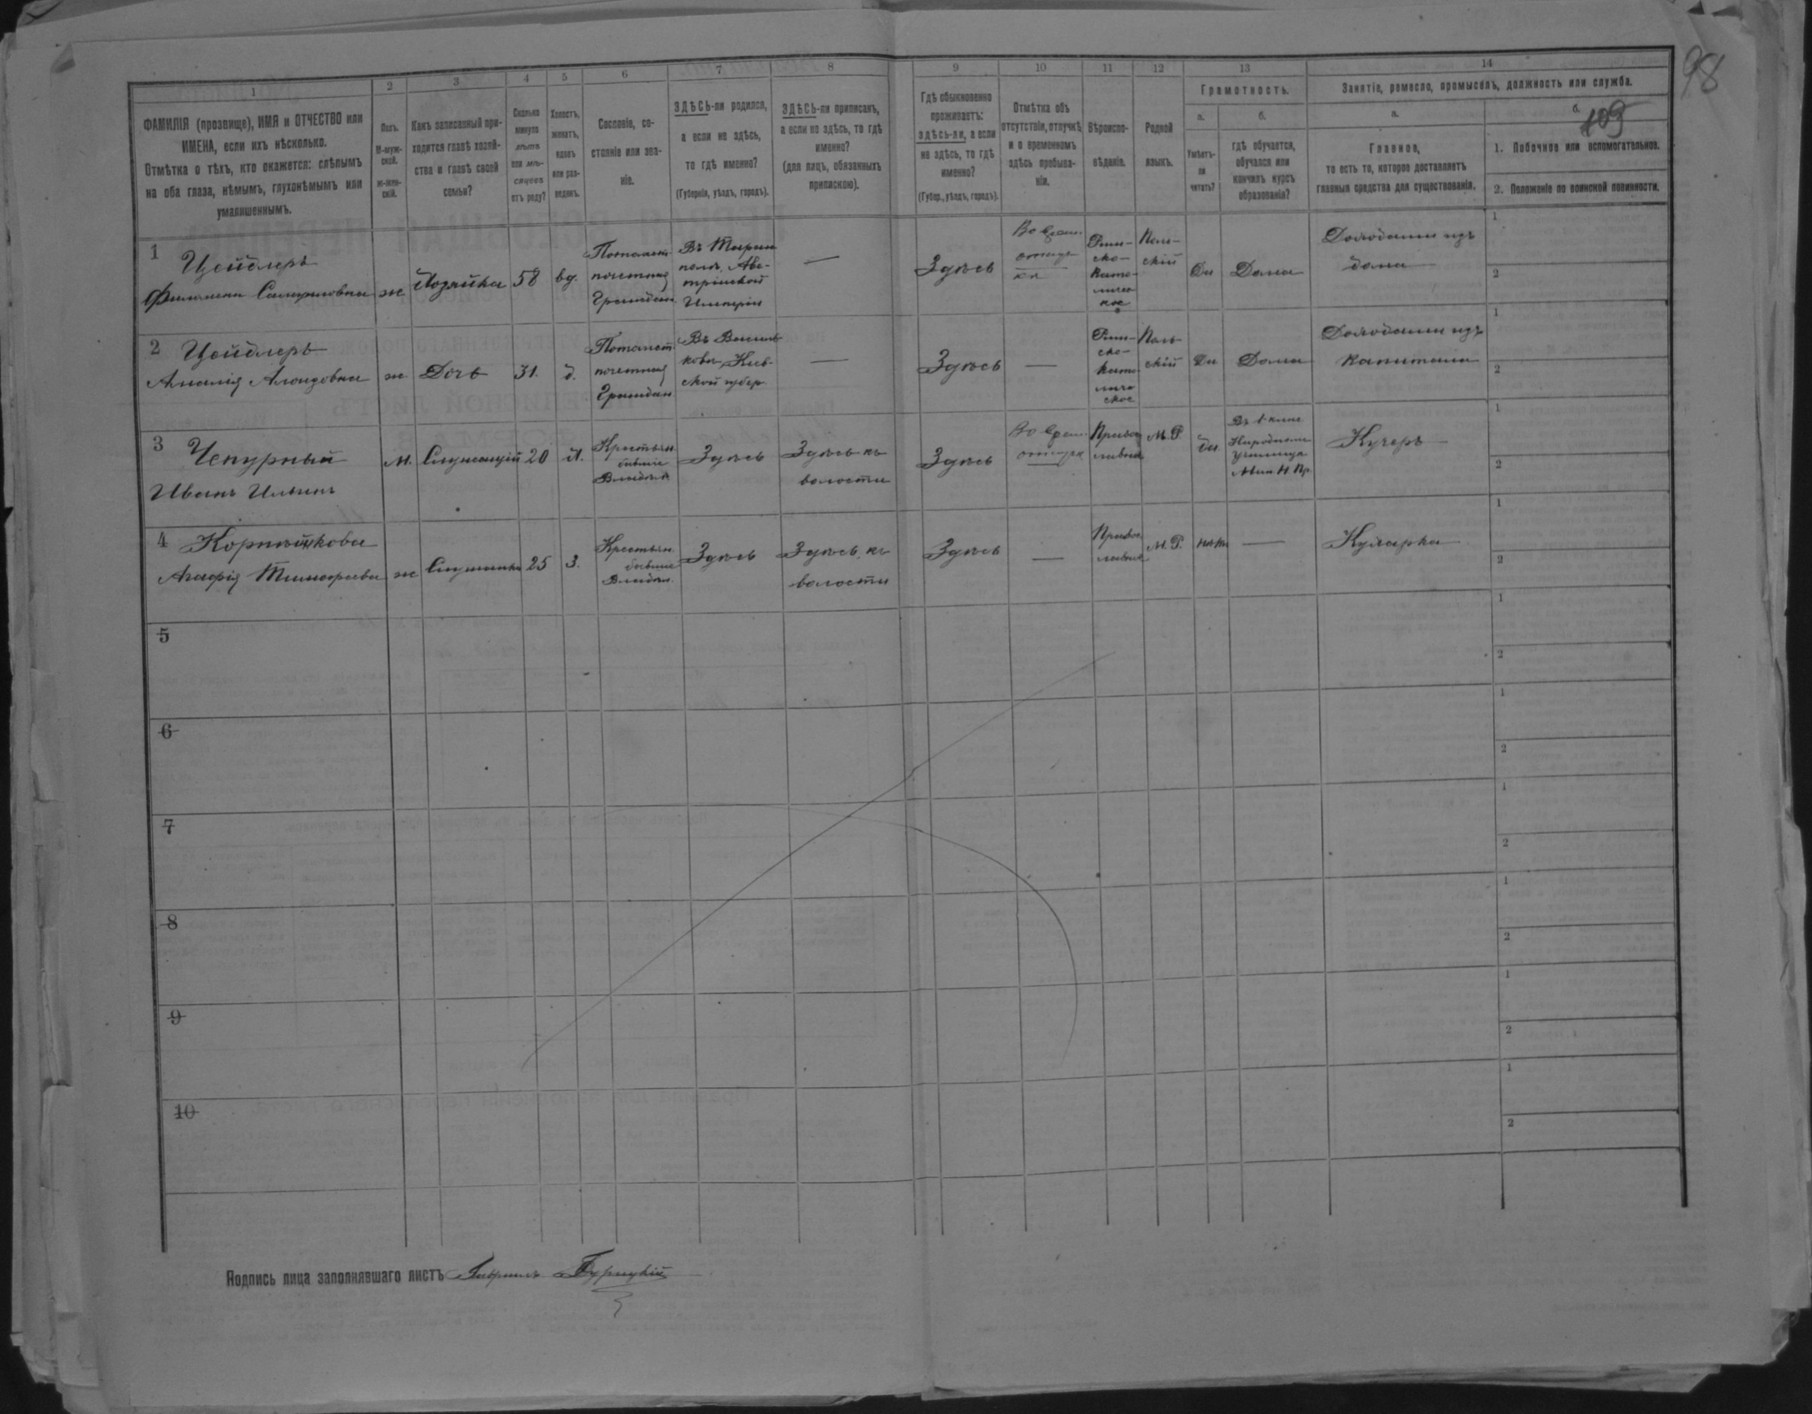 98
103
1
2
3
4
5
6
7
8
9
10
11
12
13
14
ФАМИЛІЯ (прозвище), ИМЯ и ОТЧЕСТВО или
ИМЕНА, если ихъ нѣсколько.
Отмѣтка о тѣхъ, кто окажется: слѣпымъ
на оба глаза, нѣмымъ, глухонѣмымъ или
умалишеннымъ.
Полъ.
М-муж-
ской.
ж-жен-
скій.
Какъ записанный при-
ходится главѣ хозяй-
ства и главѣ своей
семьи?
Сколько
минуло
лѣтъ
или мѣ-
сяцевъ
отъ роду?
Холостъ,
женатъ,
вдовъ
или раз-
веденъ.
Сословіе, со-
стояніе или зва-
ніе.
ЗДѢСЬ-ли родился,
а если не здѣсь,
то гдѣ именно?
(Губернія, уѣздъ, городъ).
ЗДѢСЬ-ли приписанъ,
а если не здѣсь, то гдѣ
именно?
(для лицъ, обязанныхъ
припискою).
Гдѣ обыкновенно
проживаетъ:
здѣсь-ли, а если
не здѣсь, то гдѣ
именно?
(Губер., уѣздъ, городъ).
Отмѣтка объ
отсутствіи, отлучкѣ
и о временномъ
здѣсь пребыва-
ніи.
Вѣроиспо-
вѣданіе.
Родной
языкъ.
Грамотность.
а.
Умѣетъ-
ли
читать?
б.
гдѣ обучается,
обучался или
кончилъ курсъ
образованія?
Занятіе, ремесло, промыселъ, должность или служба.
а.
Главное,
то есть то, которое доставляетъ
главныя средства для существованія.
б.
1. Побочное или вспомогательное.
2. Положеніе по воинской повинности.
1
Цейдлеръ
ж
Хозяйка
58
вд.
Потомст.
почетная
Гражданк
Въ Тарно
полѣ, Авс-
трійской
Имперіи
—
Здѣсь
Рим-
ско-
като
личе
ское
Поль-
скій
Да
Дома
Доходами изъ
дома
1
2
2 Цейдлеръ
Амалія
ж
Дочь
31.
д.
Потомст
почетная
Граждан
Въ Василь
ковѣ, Кіев-
ской губер
—
Здѣсь
—
Рим-
ско-
като
личе
ское
Поль-
скій
Да
Дома
Доходами изъ
капитала
1
2
3 Чепурный
Иванъ Ильинъ
м.
Служащій
20
х.
Крестьян
бывше
Владѣл
Здѣсь
Здѣсь къ
волости
Здѣсь
Правос
лавное
М.Р.
да
Кучеръ
1
2
4 Корнѣйкова
Агафія Тимофеева
ж
Служанка
25
з.
Крестьян
бывше
Владѣл.
Здѣсь
Здѣсь къ
волости
Здѣсь
—
Правос
лавное
М.Р.
—
Кухарка
1
2
5
1
2
6
1
2
7
1
2
8
1
2
9
1
2
10
1
2
Подпись лица заполнявшаго листъ